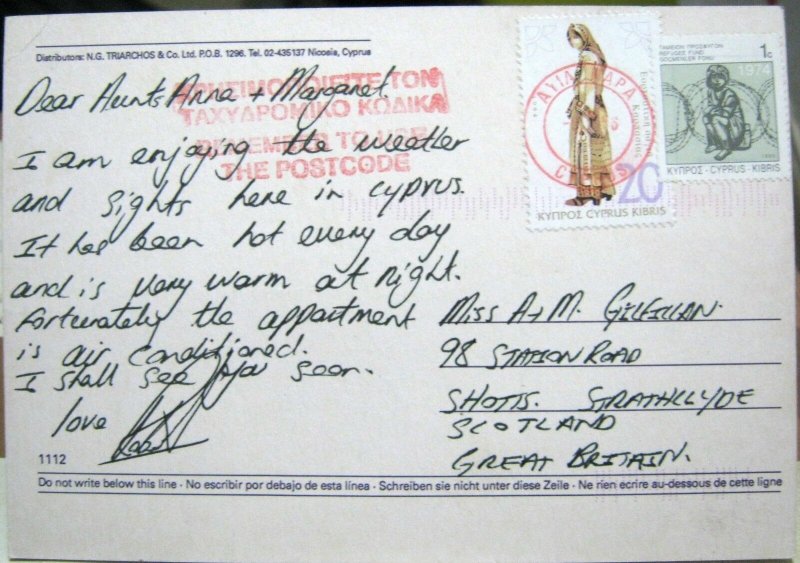 Distributors: N.G. TRIARCHOS & Co. Ltd. P.O.B. 1296. Tel. 02-435137 Nicosia, Cyprus
Dear Aunts Anna + Margaret.
I am enjoying the weather
and sights here in Cyprus.
It has been hot every day
and is very warm at night.
Fortunately the appartment
is air conditioned.
I shall see you soon.
love
1112
ΧΡΗΣΙΜΟΠΟΙΕΙΤΕ ΤΟΝ
ΤΑΧΥΔΡΟΜΙΚΟ ΚΩΔΙΚΑ
REMEMBER TO USE
THE POSTCODE
20
ΚΥΠΡΟΣ CYPRUS KIBRIS
ΤΑΜΕΙΟΝ ΠΡΟΣΦΥΓΩΝ
REFUGEE FUND
GOCMENLER FONU
1c
1974
ΚΥΠΡΟΣ · CYPRUS · KIBRIS
Miss A + M. GILFILLAN.
98 STATION ROAD
SHOTTS. STRATHCLYDE
SCOTLAND
GREAT BRITAIN.
Do not write below this line · No escribir por debajo de esta línea · Schreiben sie nicht unter diese Zeile · Ne rien ecrire au-dessous de cette ligne